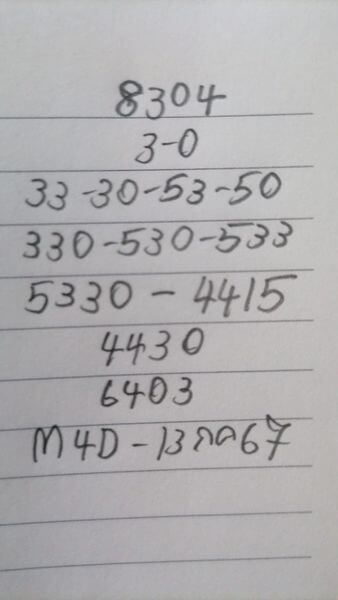 8304
3-0
33-30-53-50
330-530-533
5330-4415
4430
6403
M4D-13กค67